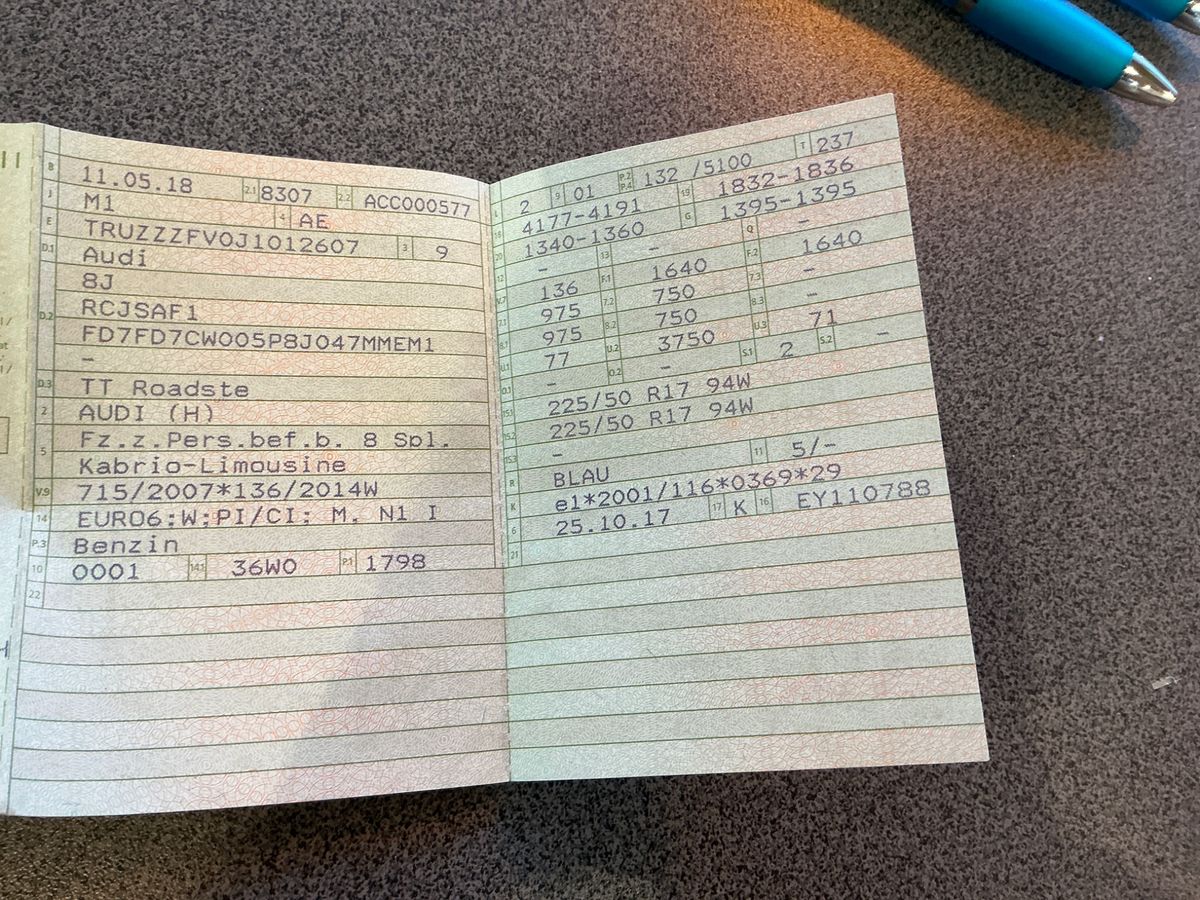 B 11.05.18 2.1 8307 2.2 ACC000577
J M1 4 AE
E TRUZZZFV0J1012607 3 9
D.1 Audi
8J
D.2 RCJSAF1
FD7FD7CW005P8J047MMEM1
-
D.3 TT Roadste
2 AUDI (H)
5 Fz.z.Pers.bef.b. 8 Spl.
Kabrio-Limousine
V.9 715/2007*136/2014W
14 EURO6;W;PI/CI; M, N1 I
P.3 Benzin
10 0001 14.1 36W0 P.1 1798
22
L 2 9 01 P.2 P.4 132 /5100 T 237
18 4177-4191 19 1832-1836
20 1340-1360 G 1395-1395
12 - 13 - Q -
V.7 136 F.1 1640 F.2 1640
7.1 975 7.2 750 7.3 -
8.1 975 8.2 750 8.3 -
U.1 77 U.2 3750 U.3 71
O.1 - O.2 - S.1 2 S.2 -
15.1 225/50 R17 94W
15.2 225/50 R17 94W
15.3 -
R BLAU 11 5/-
K e1*2001/116*0369*29
6 25.10.17 17 K 16 EY110788
21